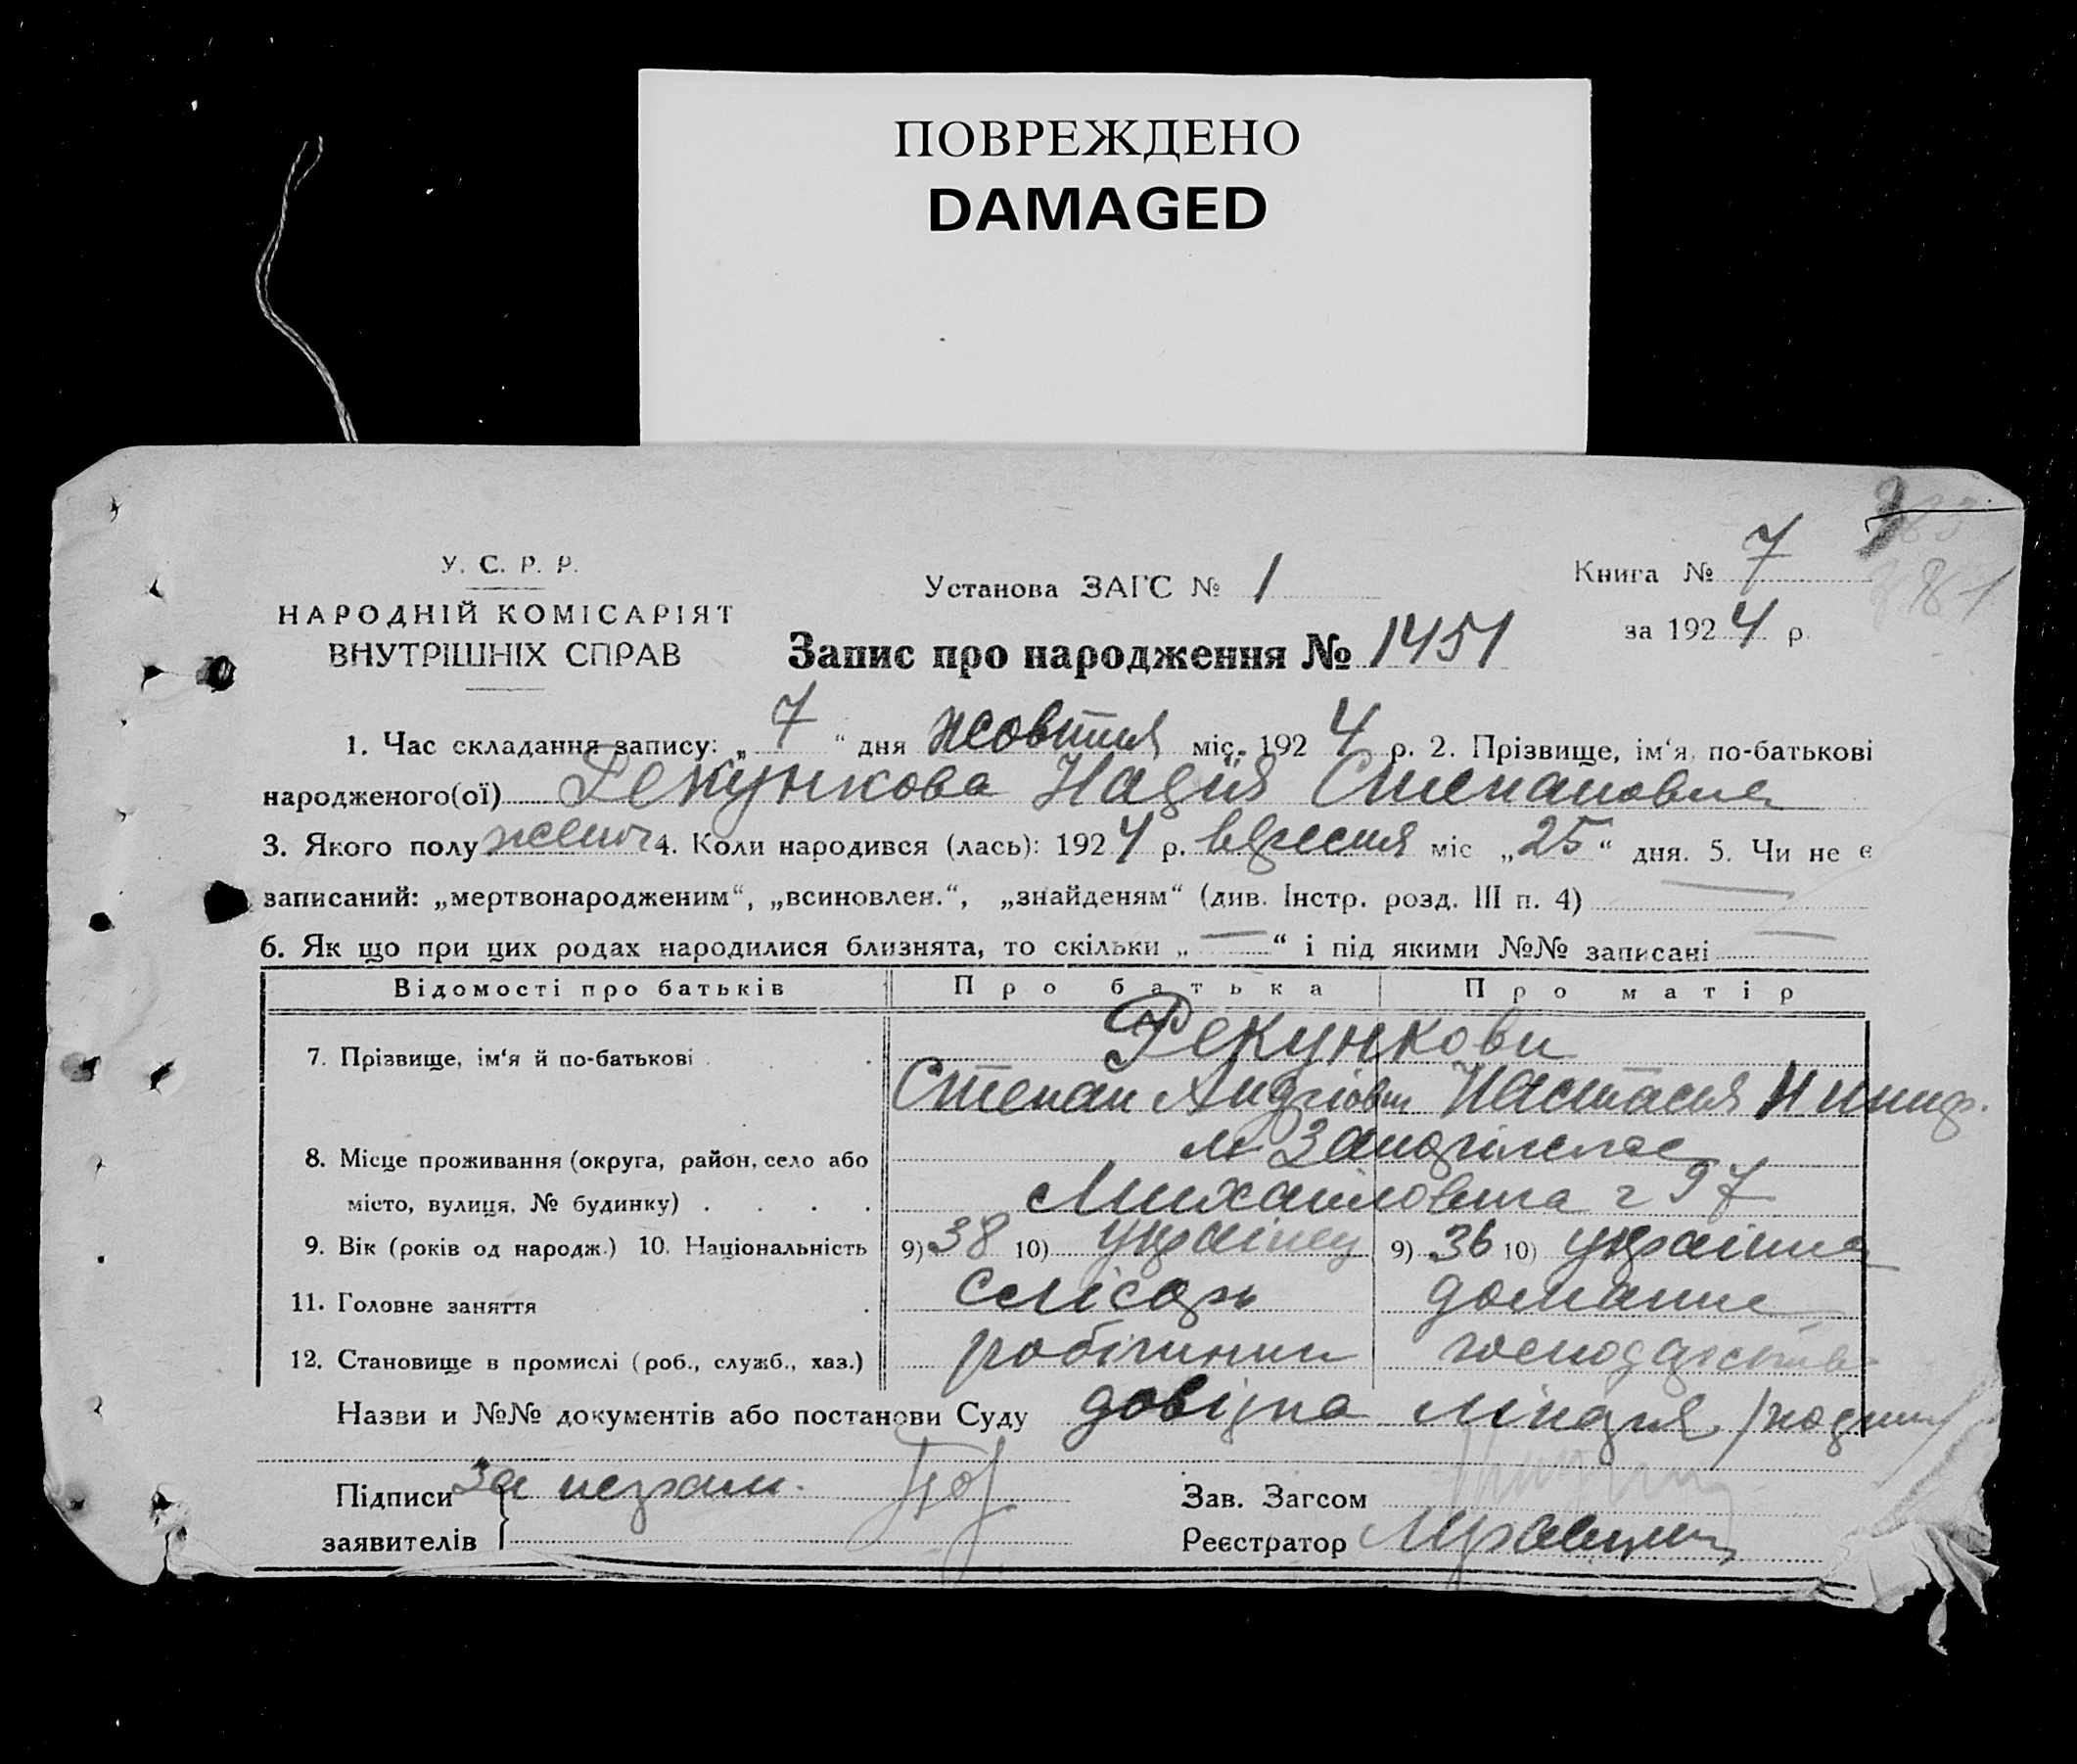 ПОВРЕЖДЕНО
DAMAGED
У. С. Р. Р.
НАРОДНІЙ КОМІСАРІЯТ
ВНУТРІШНІХ СПРАВ
Установа ЗАГС № 1
Книга № 7
за 1924 р.
781
Запис про народження № 1451
1. Час складання запису: „7“ дня жовтня міс. 1924 р. 2. Прізвище, ім‘я, по-батькові
народженого(ої) Рекункова Надія Степановна
3. Якого полу жіноч 4. Коли народився (лась): 1924 р. вересня міс „25“ дня. 5. Чи не є
записаний: „мертвонародженим“, „всиновлен.“, „знайденям“ (див. Інстр. розд. III п. 4) —
6. Як що при цих родах народилися близнята, то скільки „—“ і під якими №№ записані —
Відомості про батьків Про батька Про матір
7. Прізвище, ім‘я й по-батькові Рекункови
Степан Андріович Настасія Никиф.
8. Місце проживання (округа, район, село або
місто, вулиця, № будинку) ч 97
9. Вік (років од народж.) 10. Національність 9) 38 10) українец 9) 36 10) українка
11. Головне заняття слісарь домашнє
12. Становище в промислі (роб., служб., хаз.) робітник господарство
Назви и №№ документів або постанови Суду довідка міліція
Підписи за неграм.
заявителів
Зав. Загсом
Реєстратор